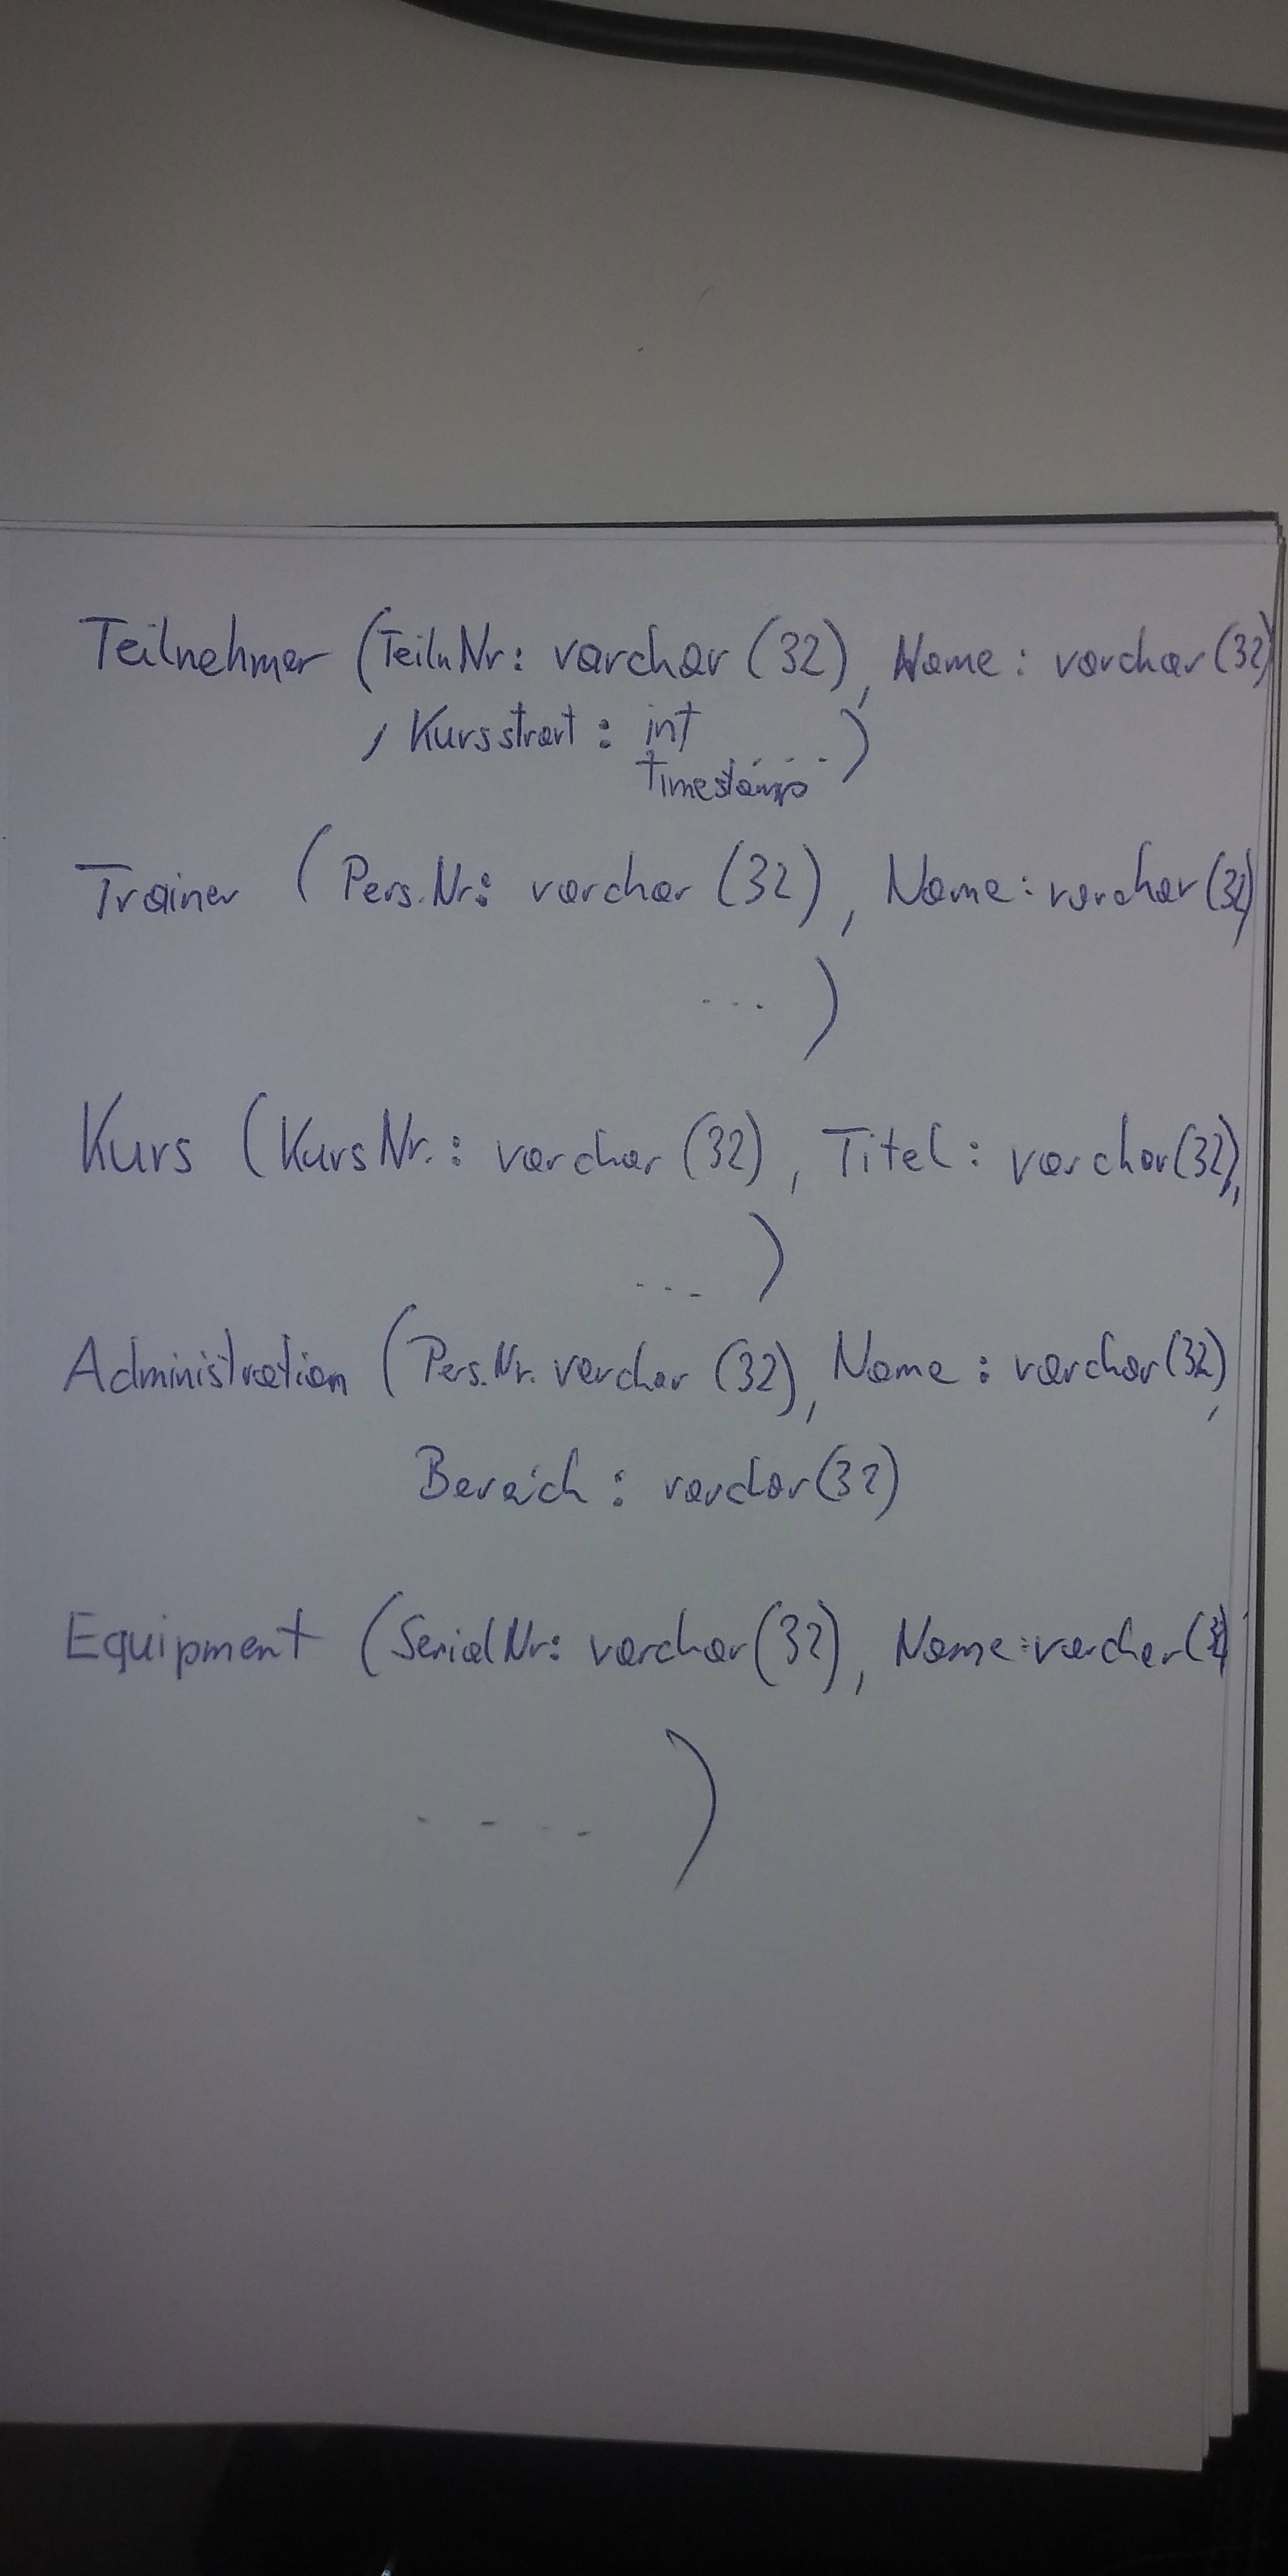 Teilnehmer (TeilnNr: varchar (32), Name: varchar (32)
, Kursstart: int ....)
timestamp
Trainer (Pers.Nr: varchar (32), Name: varchar (32)
... )
Kurs (KursNr.: varchar (32), Titel: varchar(32),
... )
Administration (Pers.Nr. varchar (32), Name: varchar(32),
Bereich: varchar(32)
Equipment (SerialNr: varchar(32), Name: varchar(32)
.... )